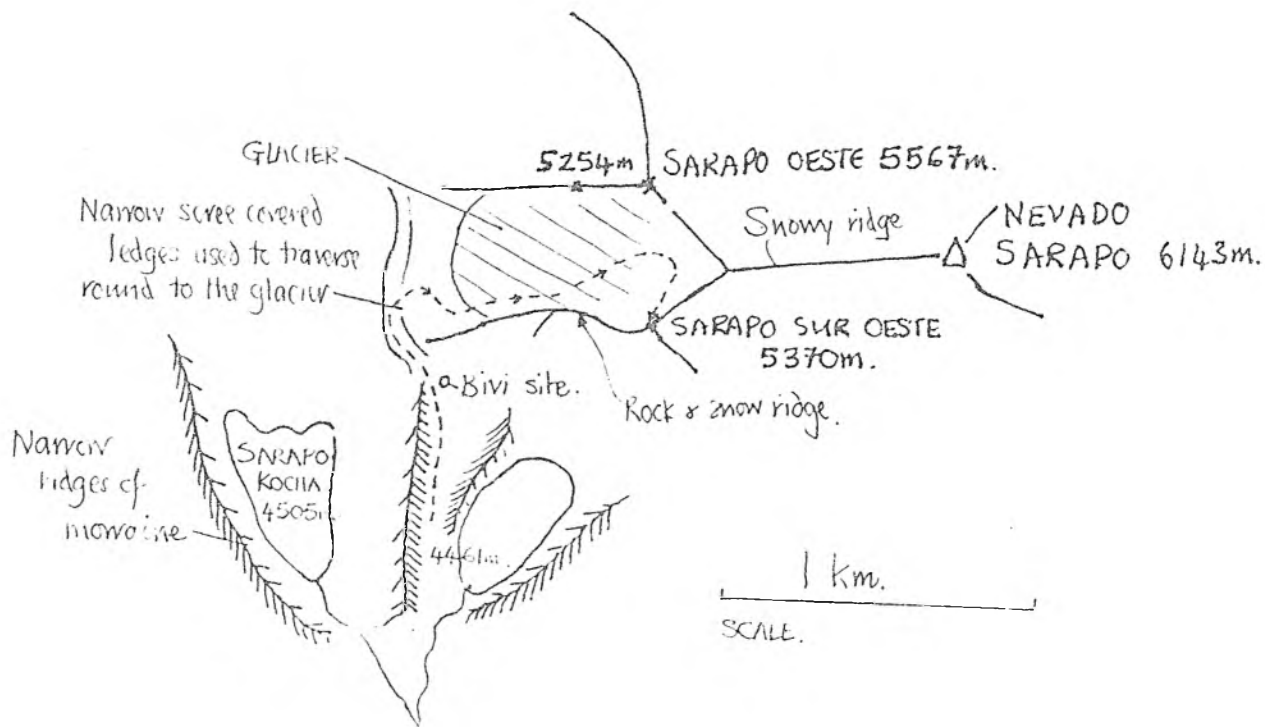 GLACIER
5254m
SARAPO OESTE 5567m.
Narrow scree covered
ledges used to traverse
round to the glacier
Snowy ridge
NEVADO
SARAPO 6143m.
SARAPO SUR OESTE
5370m.
Bivi site.
Rock & snow ridge.
Narrow
ridges of
morraine
SARAPO
KOCHA
4505m
4461m.
1 km.
SCALE.